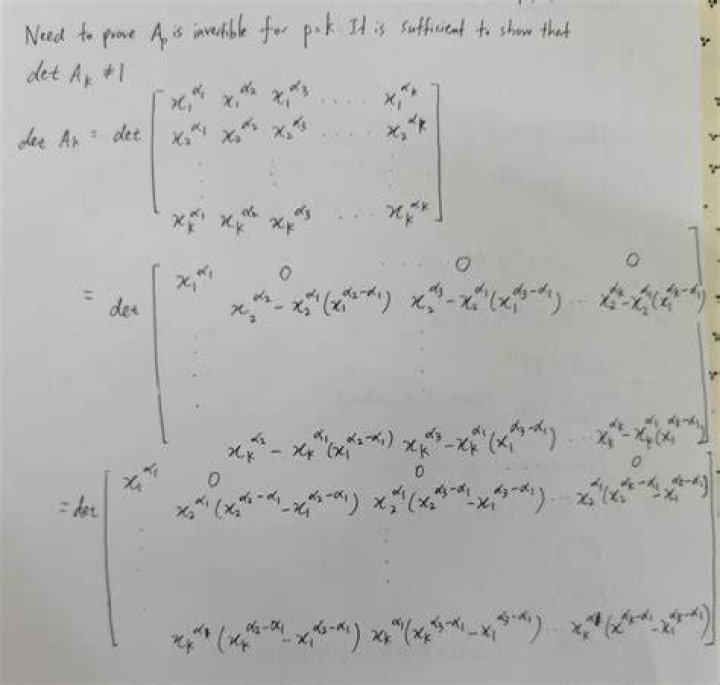 Need to prove Aₚ is invertible for p=k. It is sufficient to show that
det Aₖ ≠ 1
det Aₖ = det [ x₁^α₁ x₁^α₂ x₁^α₃ .... x₁^αₖ
x₂^α₁ x₂^α₂ x₂^α₃ .... x₂^αₖ
xₖ^α₁ xₖ^α₂ xₖ^α₃ ... xₖ^αₖ ]
= det [ x₁^α₁ 0 ... 0 0
x₂^α₂ - x₂^α₁(x₁^α₂-α₁) x₂^α₃ - x₂^α₁(x₁^α₃-α₁) ... x₂^αₖ - x₂^α₁(x₁^αₖ-α₁)
xₖ^α₂ - xₖ^α₁(x₁^α₂-α₁) xₖ^α₃ - xₖ^α₁(x₁^α₃-α₁) ... xₖ^αₖ - xₖ^α₁(x₁^αₖ-α₁) ]
= det [ x₁^α₁ 0 0 0
x₂^α₁(x₂^α₂-α₁ - x₁^α₂-α₁) x₂^α₁(x₂^α₃-α₁ - x₁^α₃-α₁) ... x₂^α₁(x₂^αₖ-α₁ - x₁^αₖ-α₁)
xₖ^α₁(xₖ^α₂-α₁ - x₁^α₂-α₁) xₖ^α₁(xₖ^α₃-α₁ - x₁^α₃-α₁) ... xₖ^α₁(x^αₖ-α₁ - x₁^αₖ-α₁) ]